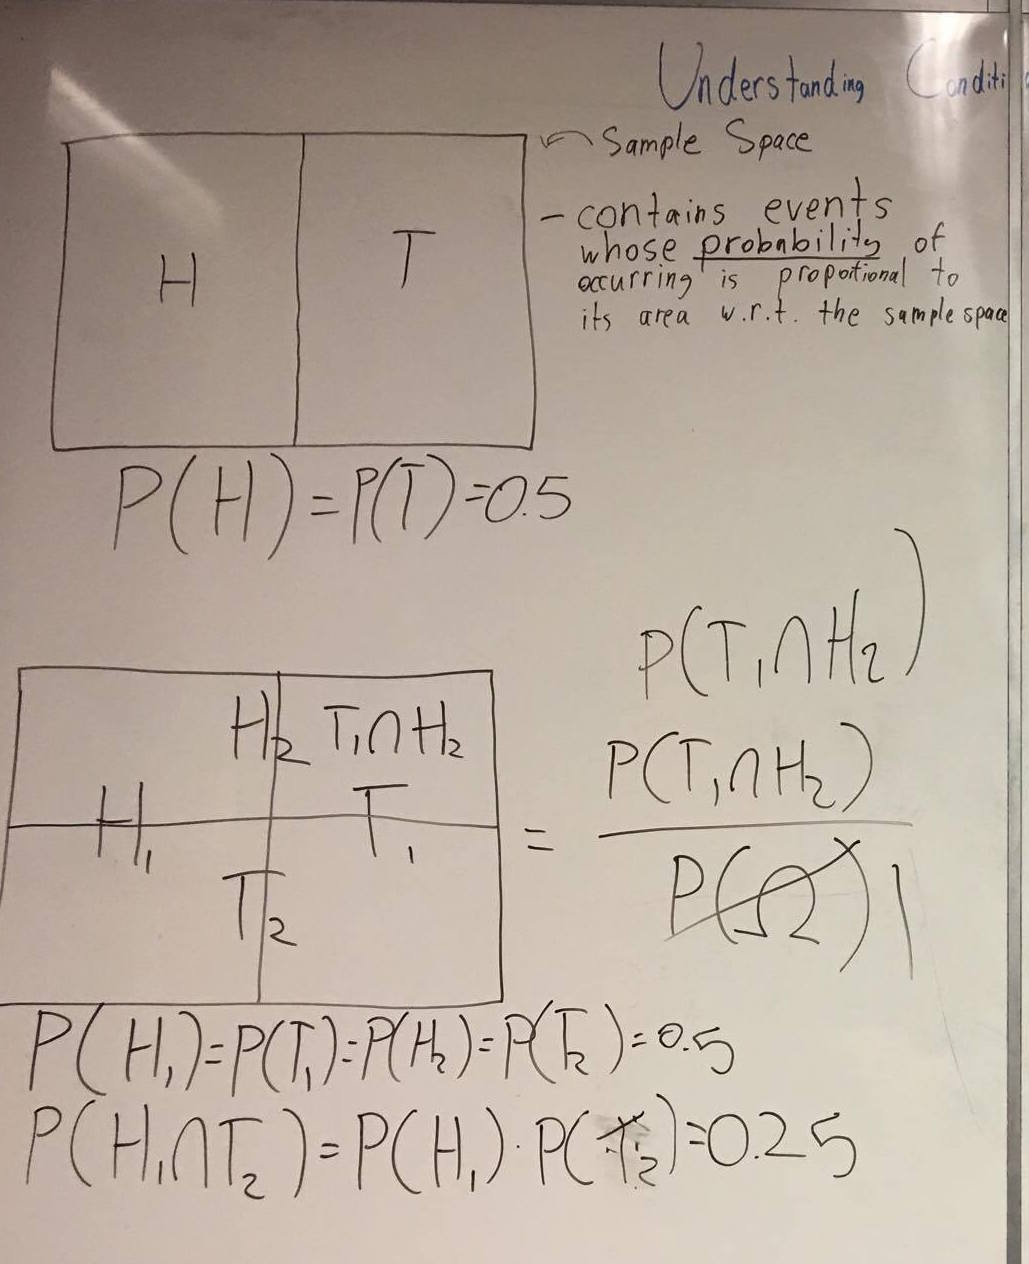 Understanding Conditi
Sample Space
- contains events
whose probability of
occurring is proportional to
its area w.r.t. the sample space
H
T
P(H)=P(T)=0.5
P(T₁∩H₂)
H₂ T₁∩H₂
H₁ T₁
T₂
=
P(T₁∩H₂)
P(Ω) 1
P(H₁)=P(T₁)=P(H₂)=P(T₂)=0.5
P(H₁∩T₂)=P(H₁)·P(T₂)=0.25